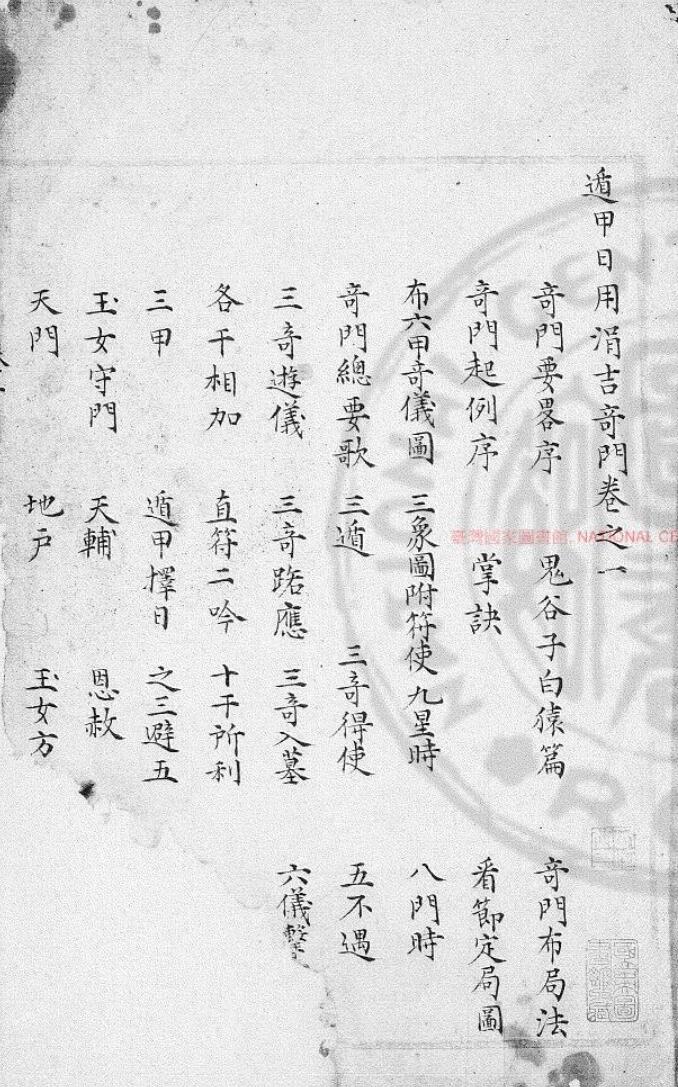 遁甲日用涓吉竒門卷之一
竒門要畧序 鬼谷子白猿篇 竒門布局法
竒門起例序 掌訣 看節定局圖
布六甲竒儀圖 三象圖附符使九星時 八門時
竒門總要歌 三遁 三竒得使 五不遇
三竒遊儀 三竒路應 三竒入墓 六儀擊
各干相加 直符二吟 十干所利
三甲 遁甲擇日 之三避五
玉女守門 天輔 恩赦
天門 地户 玉女方
臺灣國家圖書館, NATIONAL CE